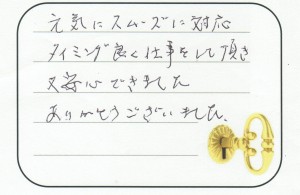 元気にスムーズに対応
タイミング良く仕事をして頂き
又安心できました
ありがとうございました。